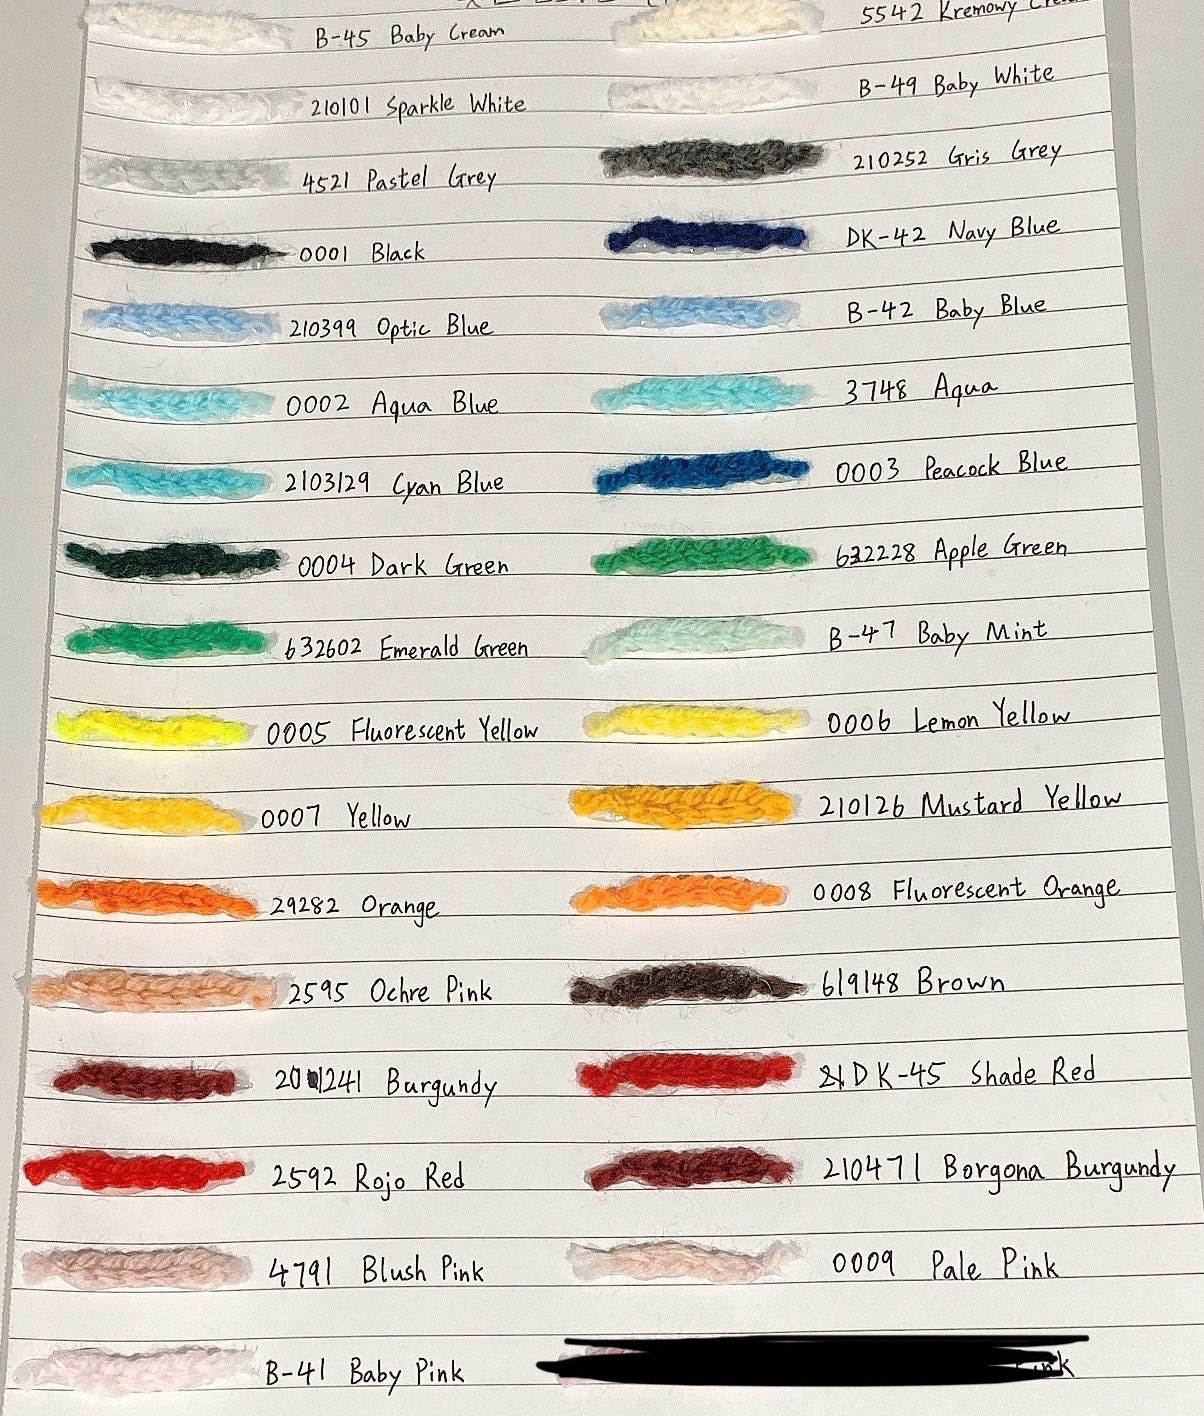 B-45 Baby Cream 5542 Kremowy
210101 Sparkle White B-49 Baby White
4521 Pastel Grey 210252 Gris Grey
0001 Black DK-42 Navy Blue
210399 Optic Blue B-42 Baby Blue
0002 Aqua Blue 3748 Aqua
2103129 Cyan Blue 0003 Peacock Blue
0004 Dark Green 632228 Apple Green
632602 Emerald Green B-47 Baby Mint
0005 Fluorescent Yellow 0006 Lemon Yellow
0007 Yellow 210126 Mustard Yellow
29282 Orange 0008 Fluorescent Orange
2595 Ochre Pink 619148 Brown
201241 Burgundy DK-45 Shade Red
2592 Rojo Red 210471 Borgona Burgundy
4791 Blush Pink 0009 Pale Pink
B-41 Baby Pink